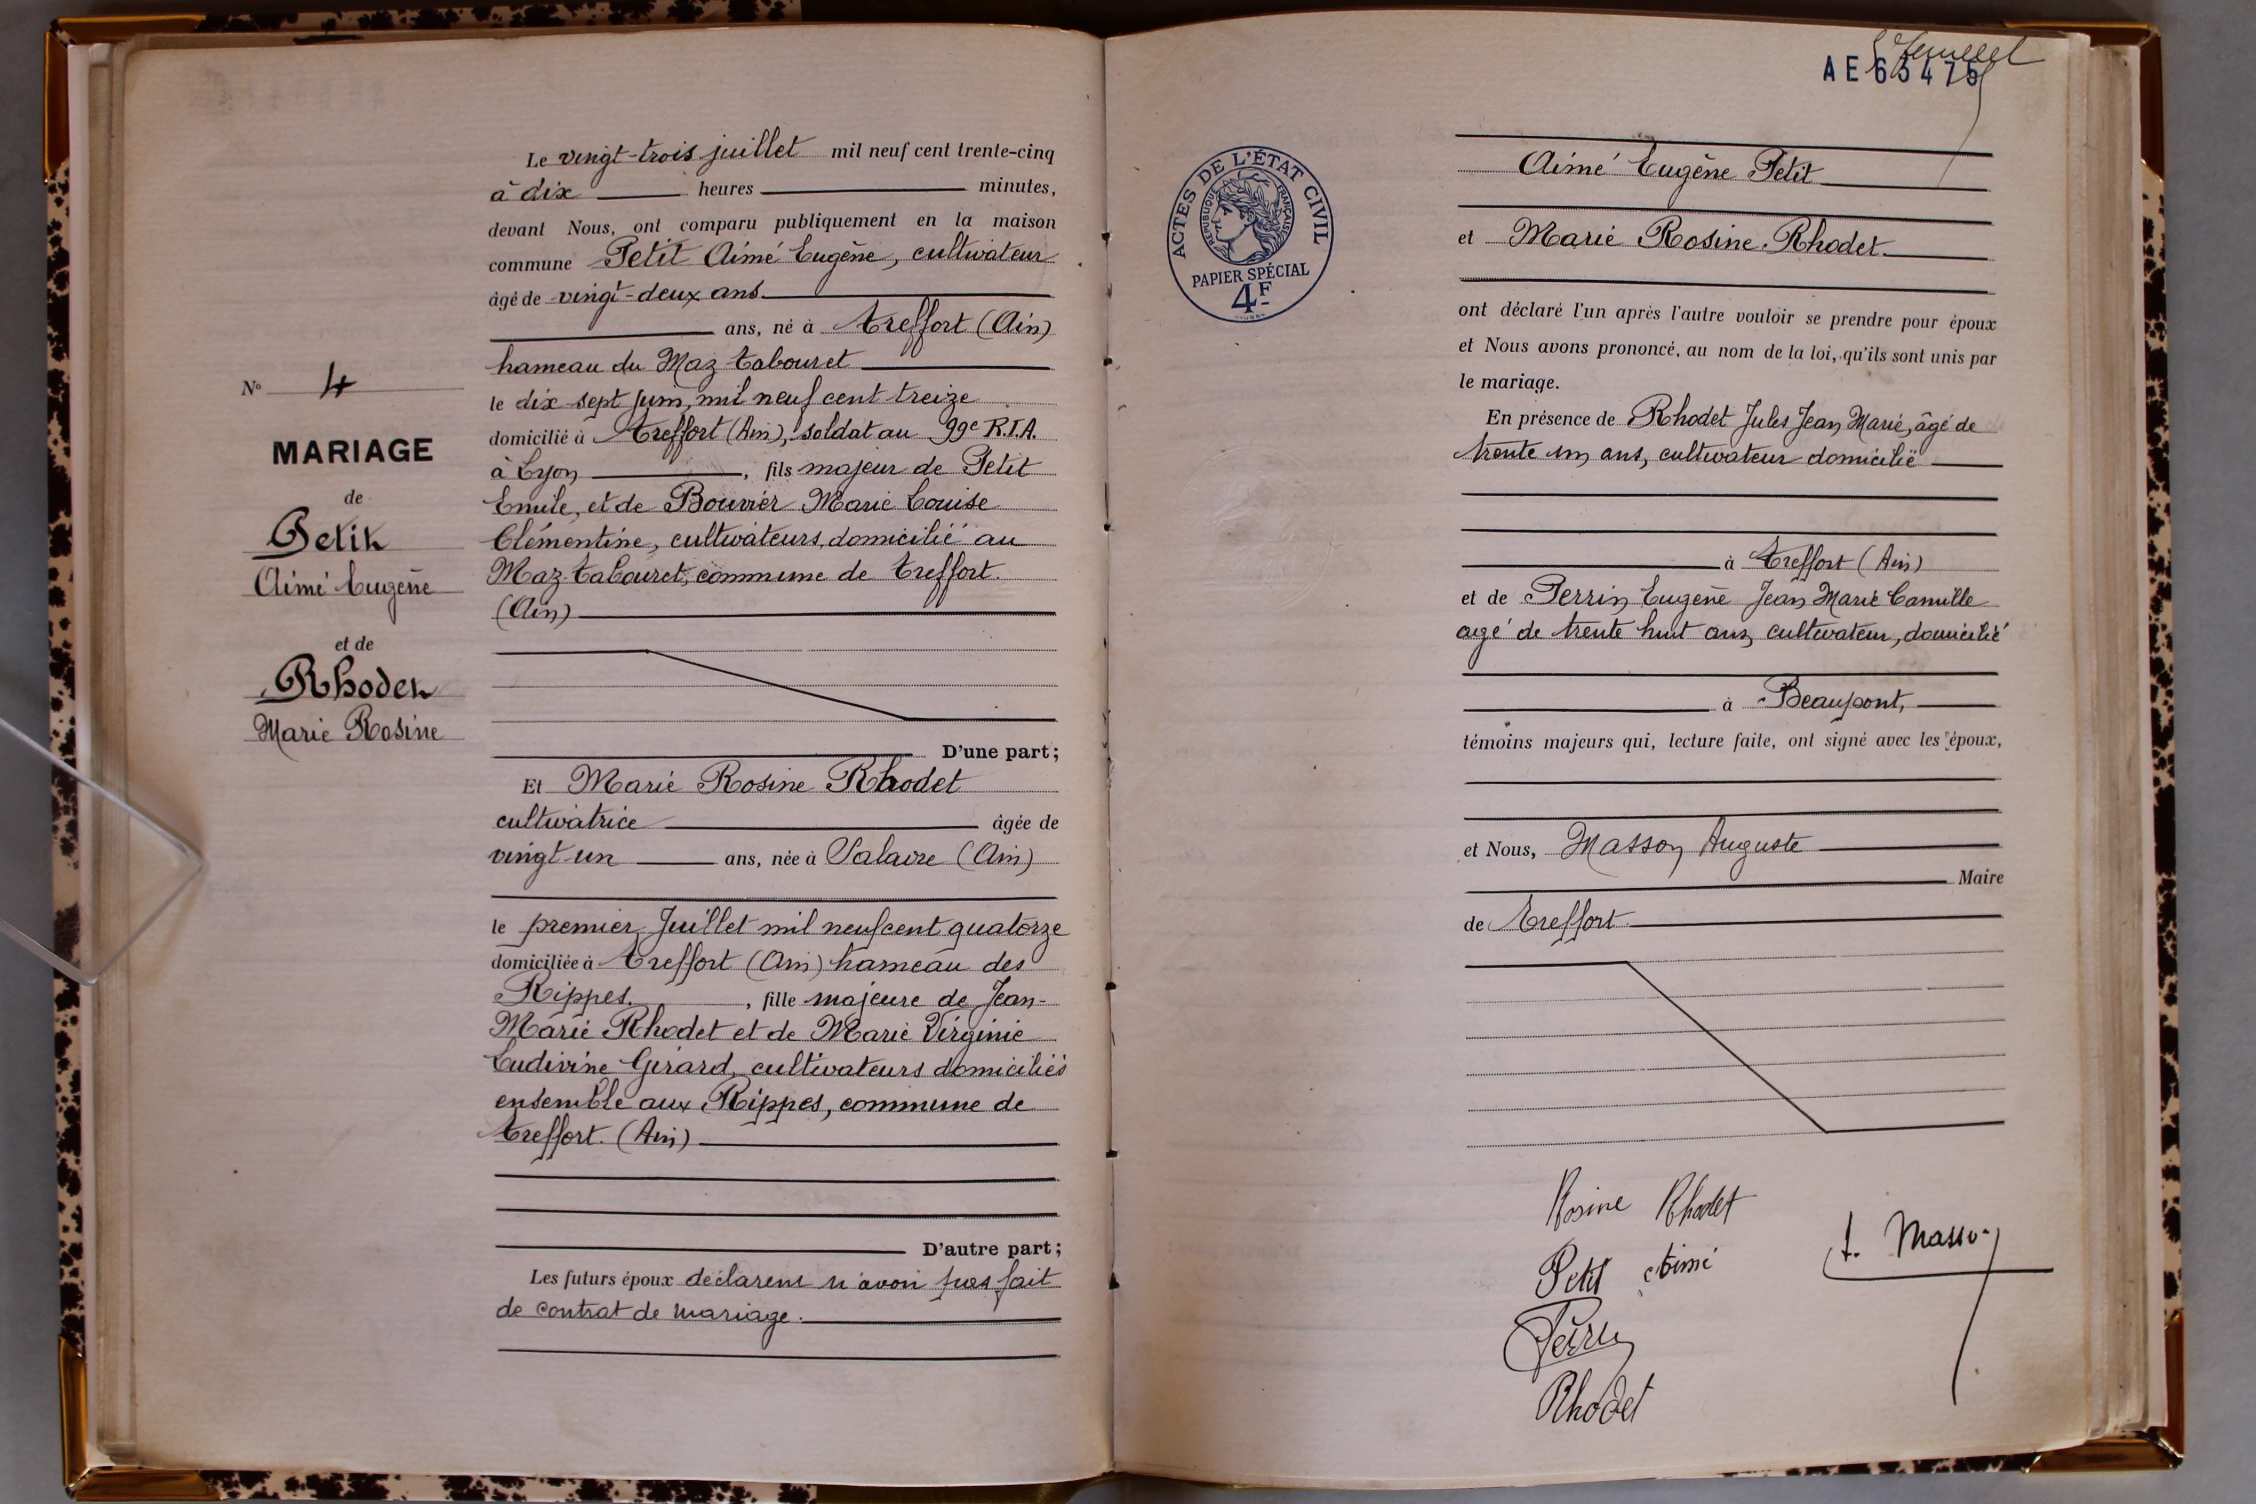 Le vingt-trois juillet mil neuf cent trente-cinq
à dix heures minutes,
devant Nous, ont comparu publiquement en la maison
commune Petit Aimé Eugène, cultivateur
âgé de vingt-deux ans
ans, né à Treffort (Ain)
hameau du Maz Tabouret
le dix sept Juin, mil neuf cent treize
domicilié à Treffort (Ain), soldat au 99e R.I.A.
à Lyon, fils majeur de Petit
Emile, et de Bouvier Marie Louise
Clémentine, cultivateurs, domicilié au
Maz-Tabouret, commune de Treffort.
(Ain)
D'une part;
Et Marie Rosine Rhodet
cultivatrice âgée de
vingt-un ans, née à (Ain)
le premier Juillet mil neuf cent quatorze
domiciliée à Treffort (Ain) hameau des
Rippes, fille majeure de Jean-
Marie Rhodet et de Marie Virginie
Ludivine Girard, cultivateurs domiciliés
ensemble aux Rippes, commune de
Treffort. (Ain)
D'autre part;
Les futurs époux déclarent n'avoir pas fait
de contrat de mariage.
No 4
MARIAGE
de
Petit
Aimé Eugène
et de
Rhodet
Marie Rosine
AE63475
ACTES DE L'ÉTAT CIVIL
RÉPUBLIQUE FRANÇAISE
PAPIER SPÉCIAL
4F
Aimé Eugène Petit
et Marie Rosine Rhodet
ont déclaré l'un après l'autre vouloir se prendre pour époux
et Nous avons prononcé, au nom de la loi, qu'ils sont unis par
le mariage.
En présence de Rhodet Jules Jean Marie, âgé de
trente un ans, cultivateur domicilié
à Treffort (Ain)
et de Perrin Eugène Jean Marie Camille
agé de trente huit ans, cultivateur, domicilié
à Beaupont,
témoins majeurs qui, lecture faite, ont signé avec les époux,
et Nous, Masson Auguste
Maire
de Treffort
Rosine Rhodet
Petit Aimé
A. Masson
Perrin
Rhodet